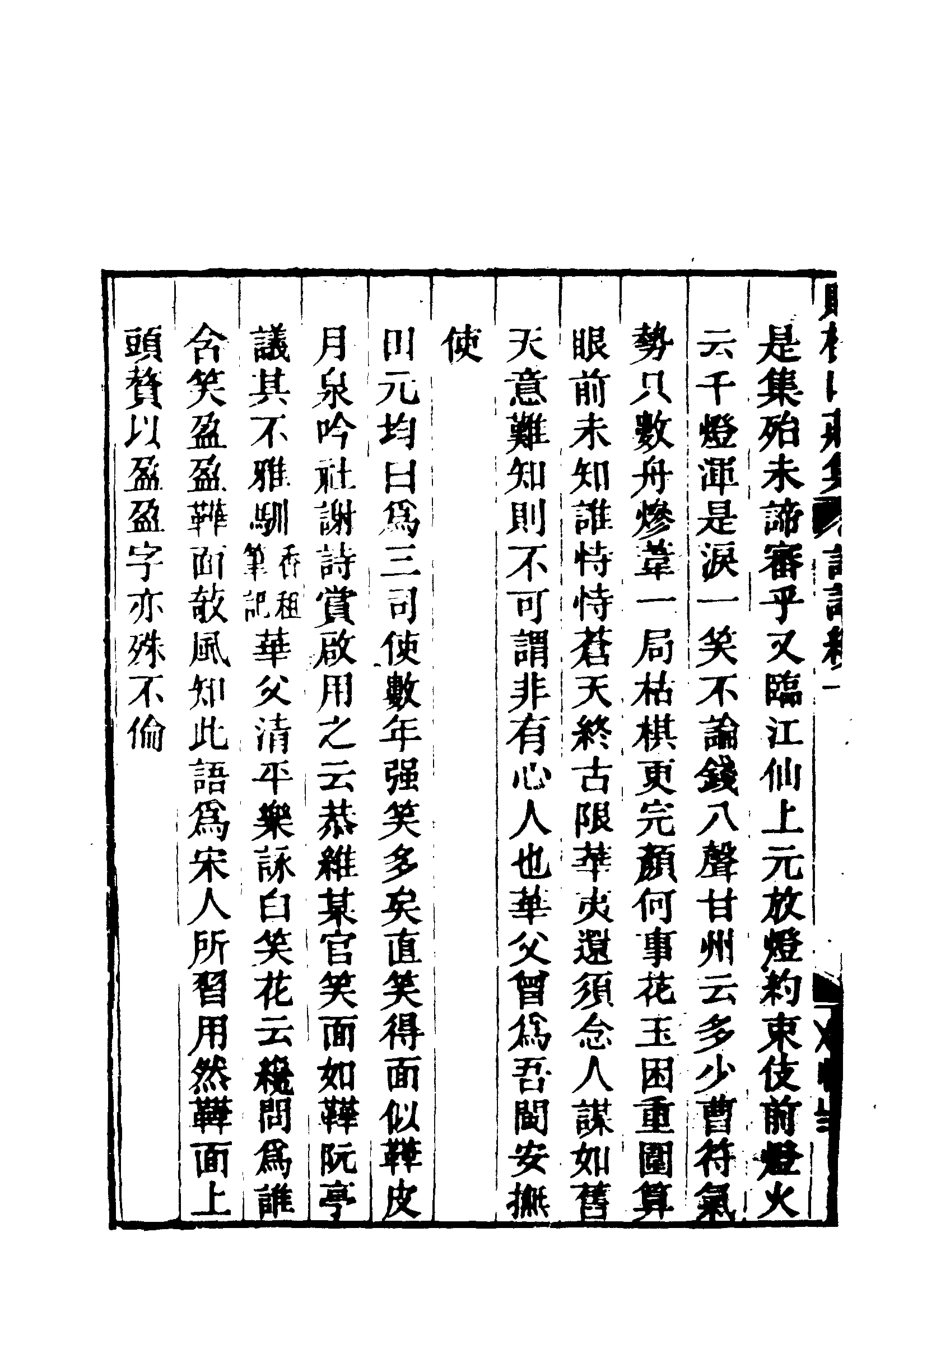 賭棋山莊集 詞話續一
是集殆未諦審乎又臨江仙上元放燈約束伎前燈火
云千燈渾是淚一笑不論錢八聲甘州云多少曹符氣
勢只數舟燈葦一局枯棋更完顏何事花玉困重圍算
眼前未知誰恃恃蒼天終古限華夷還須念人謀如舊
天意難知則不可謂非有心人也華父曾爲吾閩安撫
使
田元均曰爲三司使數年强笑多矣直笑得面似鞾皮
月泉吟社謝詩賞啟用之云恭維某官笑面如鞾阮亭
議其不雅馴香祖筆記華父清平樂詠白笑花云纔問爲誰
含笑盈盈鞾面敧風知此語爲宋人所習用然鞾面上
頭贅以盈盈字亦殊不倫